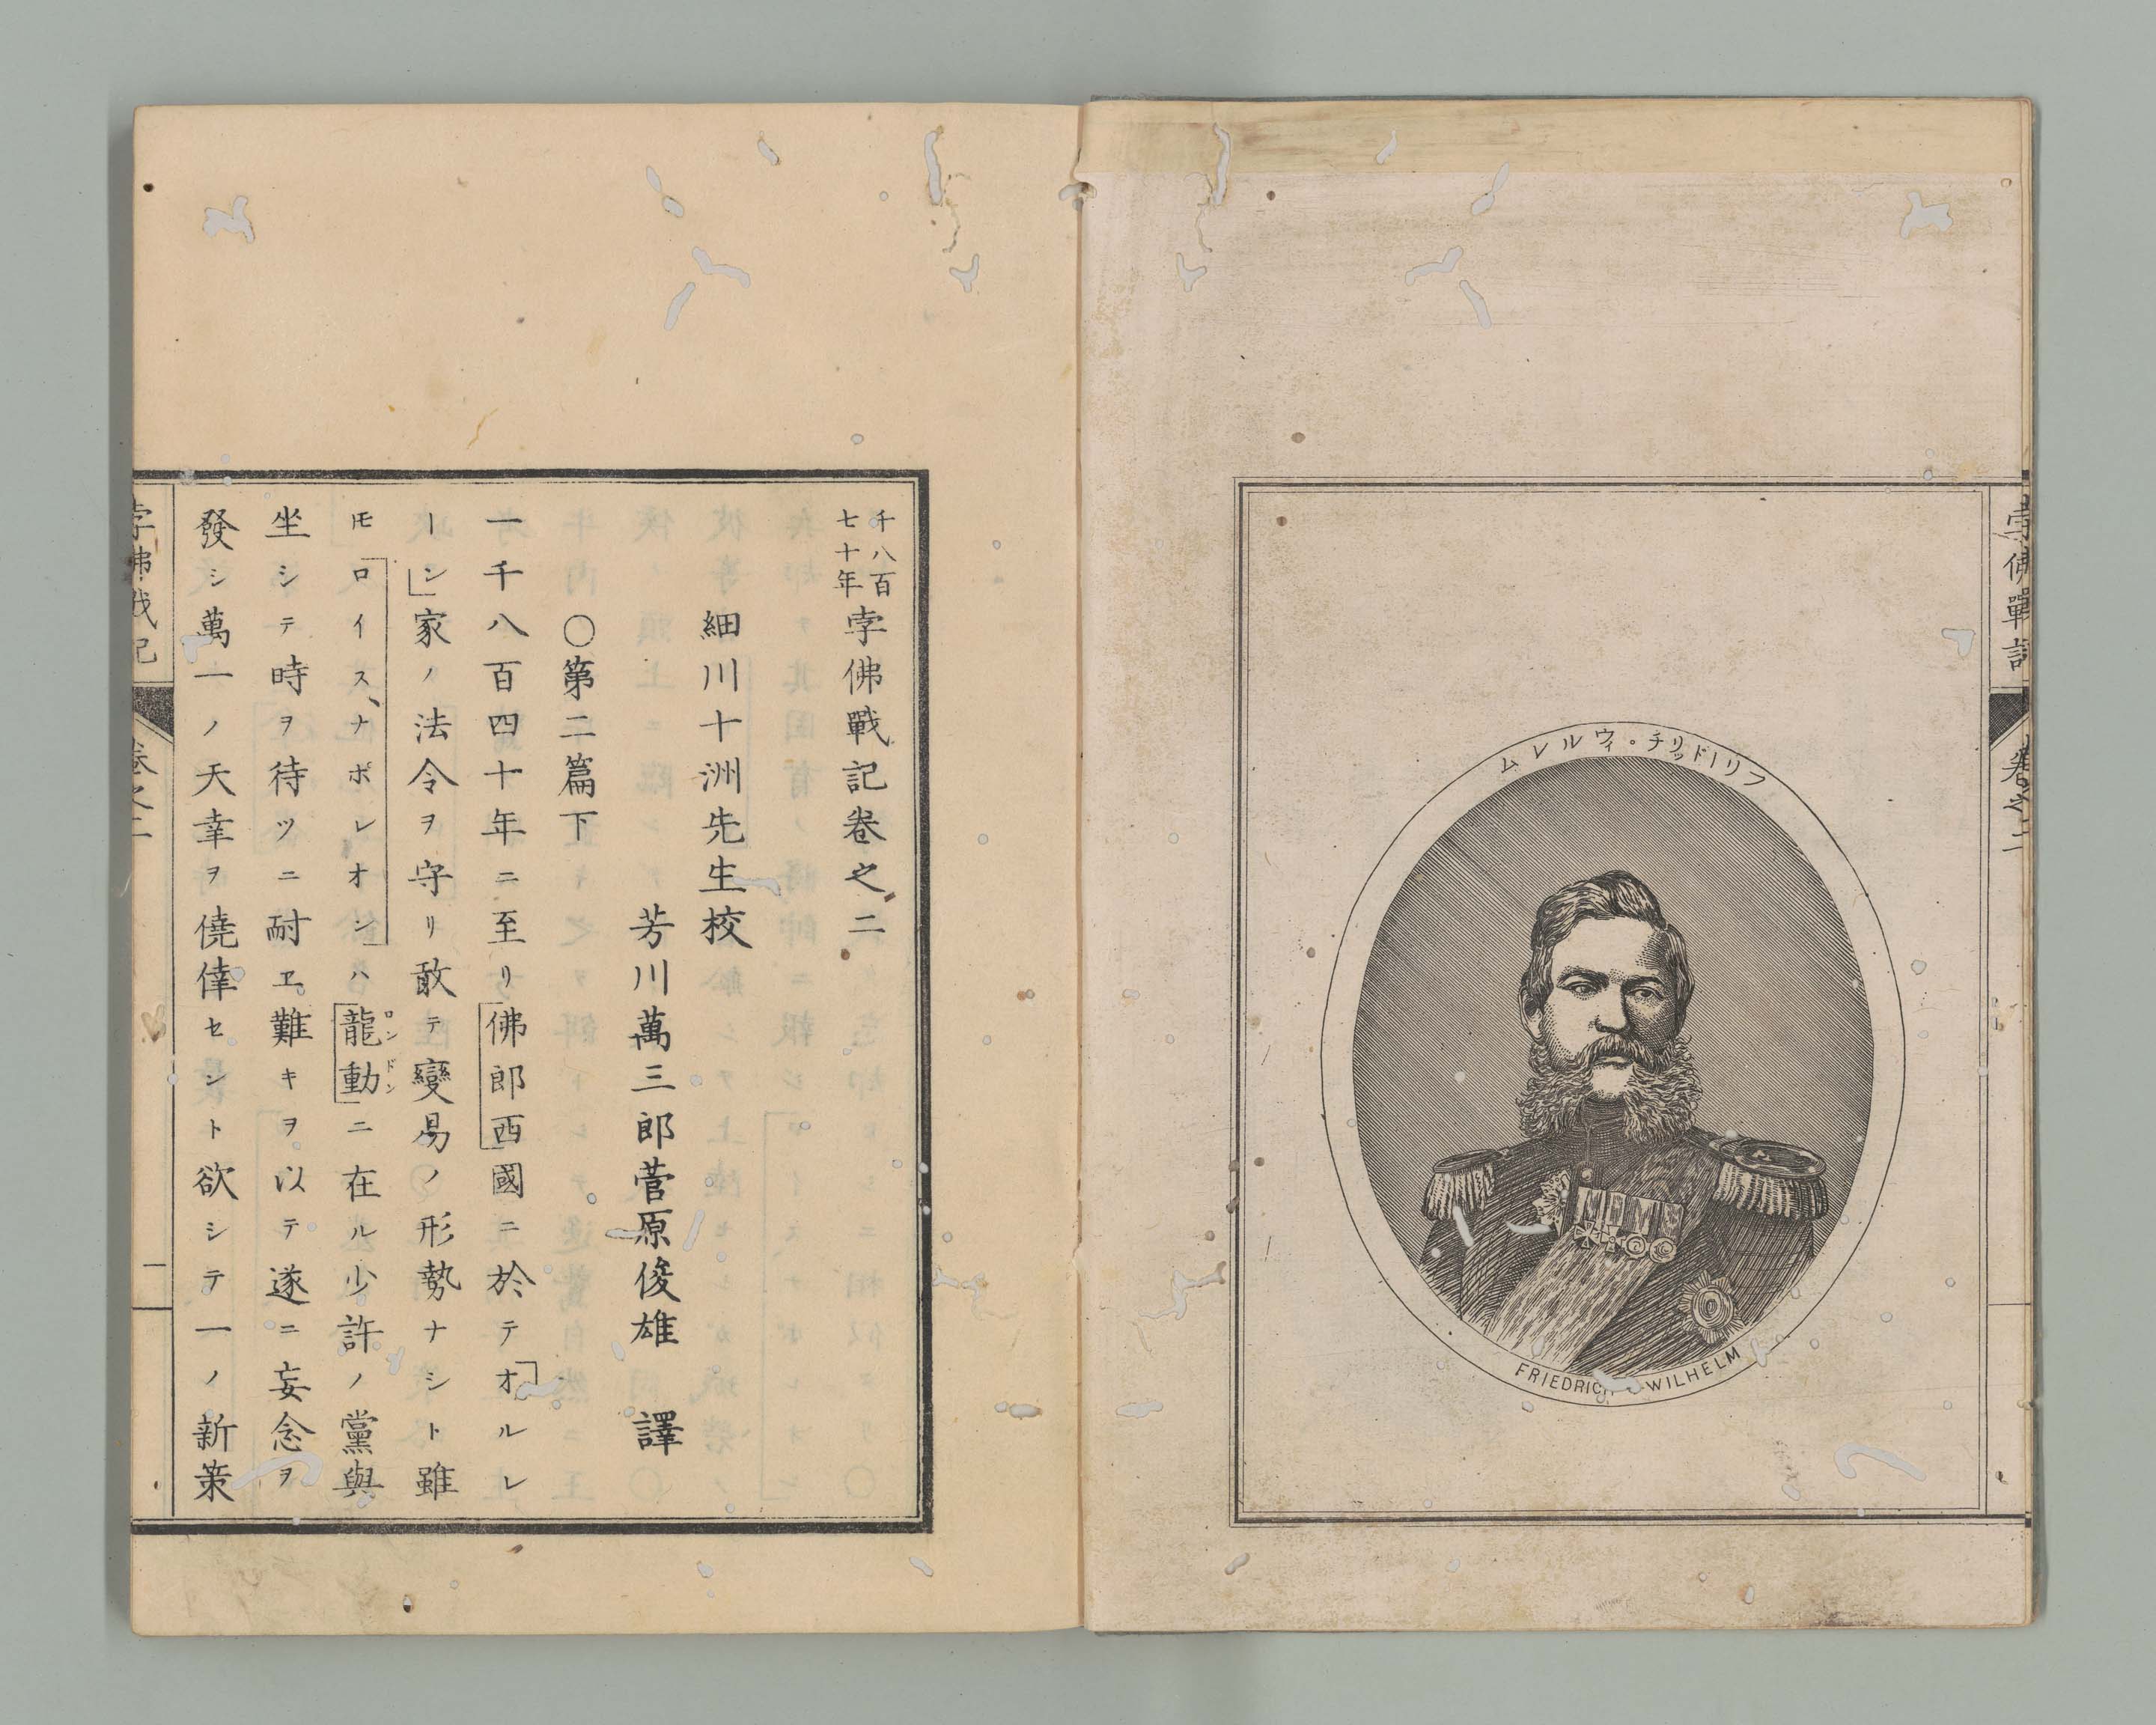 孛佛戰記
卷之二
フリードリッチ。ヴィルレム
FRIEDRICH WILHELM
千八百七十年孛佛戰記卷之二
細川十洲先生校
芳川萬三郎菅原俊雄 譯
〇第二篇下
一千八百四十年ニ至リ「佛郎西」國ニ於テ「オルレ
ーン」家ノ法令ヲ守リ敢テ變易ノ形勢ナシト雖
𪜈「ロイス、ナポレオン」ハ「龍動」ロンドンニ在ル少許ノ黨與
坐シテ時ヲ待ツニ耐ヱ難キヲ以テ遂ニ妄念ヲ
發シ萬一ノ天幸ヲ僥倖セシト欲シテ一ノ新策
孛佛戰記
卷之二
一